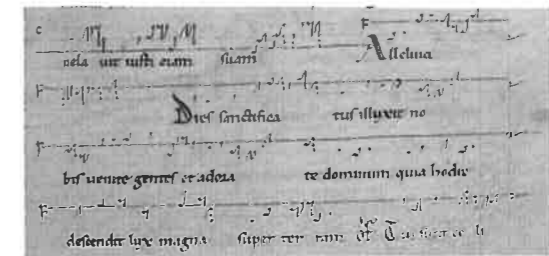 C F
suam Alleluia
F Dies sanctifica tus illuxit no
F bis uenite gentes et adora te dominum quia hodie
F descendit lux magna super ter ram Of Tui sunt ce li